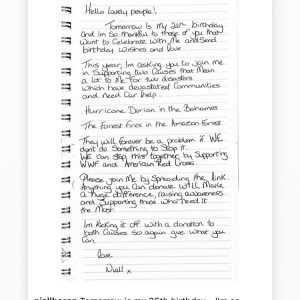 Hello lovely people!
Tomorrow is my 26th birthday
and Im so thankful to those of you that
want to celebrate with me and send
birthday wishes and love.
This year, Im asking you to join me
in Supporting two causes that mean
a lot to me for two disasters
which have devastated Communities
and need our help.
Hurricane Dorian in the Bahamas
The Forest Fires in the Amazon Forest
They will forever be a problem if WE
dont do Something to Stop it.
WE can stop this together by Supporting
WWF and American Red Cross.
Please Join me by Spreading the link.
Anything you can donate WILL Make
a huge difference, raising awareness
and Supporting those who need it
the Most.
Im Kicking it off with a donation to
both Causes so again give what you
Can
love
Niall x
niallhoran Tomorrow is my 26th birthday